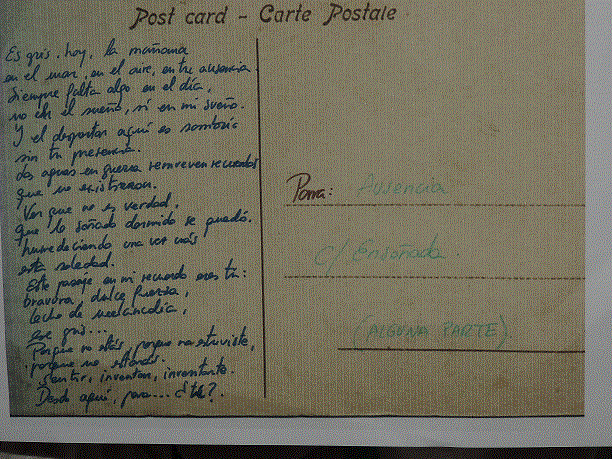 Post card - Carte Postale
Es gris, hoy, la mañana
en el mar, en el aire, entre ausencia.
Siempre falta algo en el día,
no en el sueño, ni en mi sueño.
Y el despertar aquí es sombrío
sin tu presencia.
dos aguas en guerra remueven recuerdos
que no existieron.
Ven que no es verdad,
que lo soñado dormido se quedó.
humedeciendo una vez más
esta soledad.
Este paisaje en mi recuerdo eres tú:
bravura, dulce fuerza,
lecho de melancolía,
ese gris...
Porque no estás, porque no estuviste,
porque no estarás.
Sentir, inventar, inventarte.
Desde aquí, para... ¿tú?
Para: Ausencia
C/ Ensoñada.
(ALGUNA PARTE).